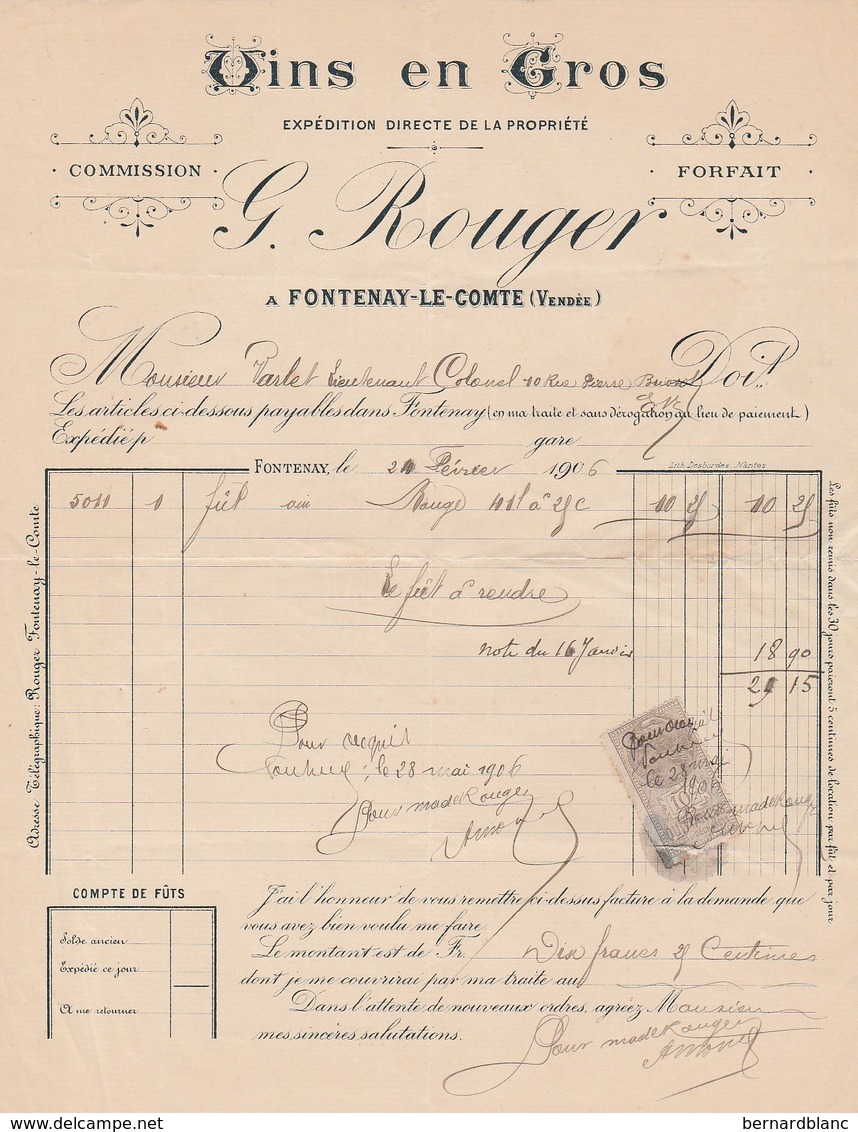 Vins en Gros
EXPÉDITION DIRECTE DE LA PROPRIÉTÉ
COMMISSION
FORFAIT
G. Rouger
A FONTENAY-LE-COMTE (VENDÉE)
Monsieur Varlet Lieutenant Colonel 10 Rue Pierre Doit
Les articles ci-dessous payables dans Fontenay (en ma traite et sans dérogation au lieu de paiement)
Expédié p gare
FONTENAY, le 20 Février 1906
Lith. Desbordes. Nantes
5011 1 fût vin Rouge 41l à 25c 10 25 10 25
Le fût à rendre
note du 16 Janvier 18 90
29 15
Pour acquit
le 28 mai 1906
Pour made Rouger
Pour acquit
le 28 mai
1906
Pour made Rouger
Adresse Télégraphique: Rouger Fontenay-le-Comte
Les fûts non remis dans les 30 jours paieront 5 centimes de location par fût et par jour.
COMPTE DE FÛTS
Solde ancien
Expédié ce jour
A me retourner
J'ai l'honneur de vous remettre ci-dessus facture à la demande que
vous avez bien voulu me faire.
Le montant est de Fr. Dix francs 25 Centimes
dont je me couvrirai par ma traite au
Dans l'attente de nouveaux ordres, agréez Monsieur
mes sincères salutations.
Pour made Rouger
bernardblanc